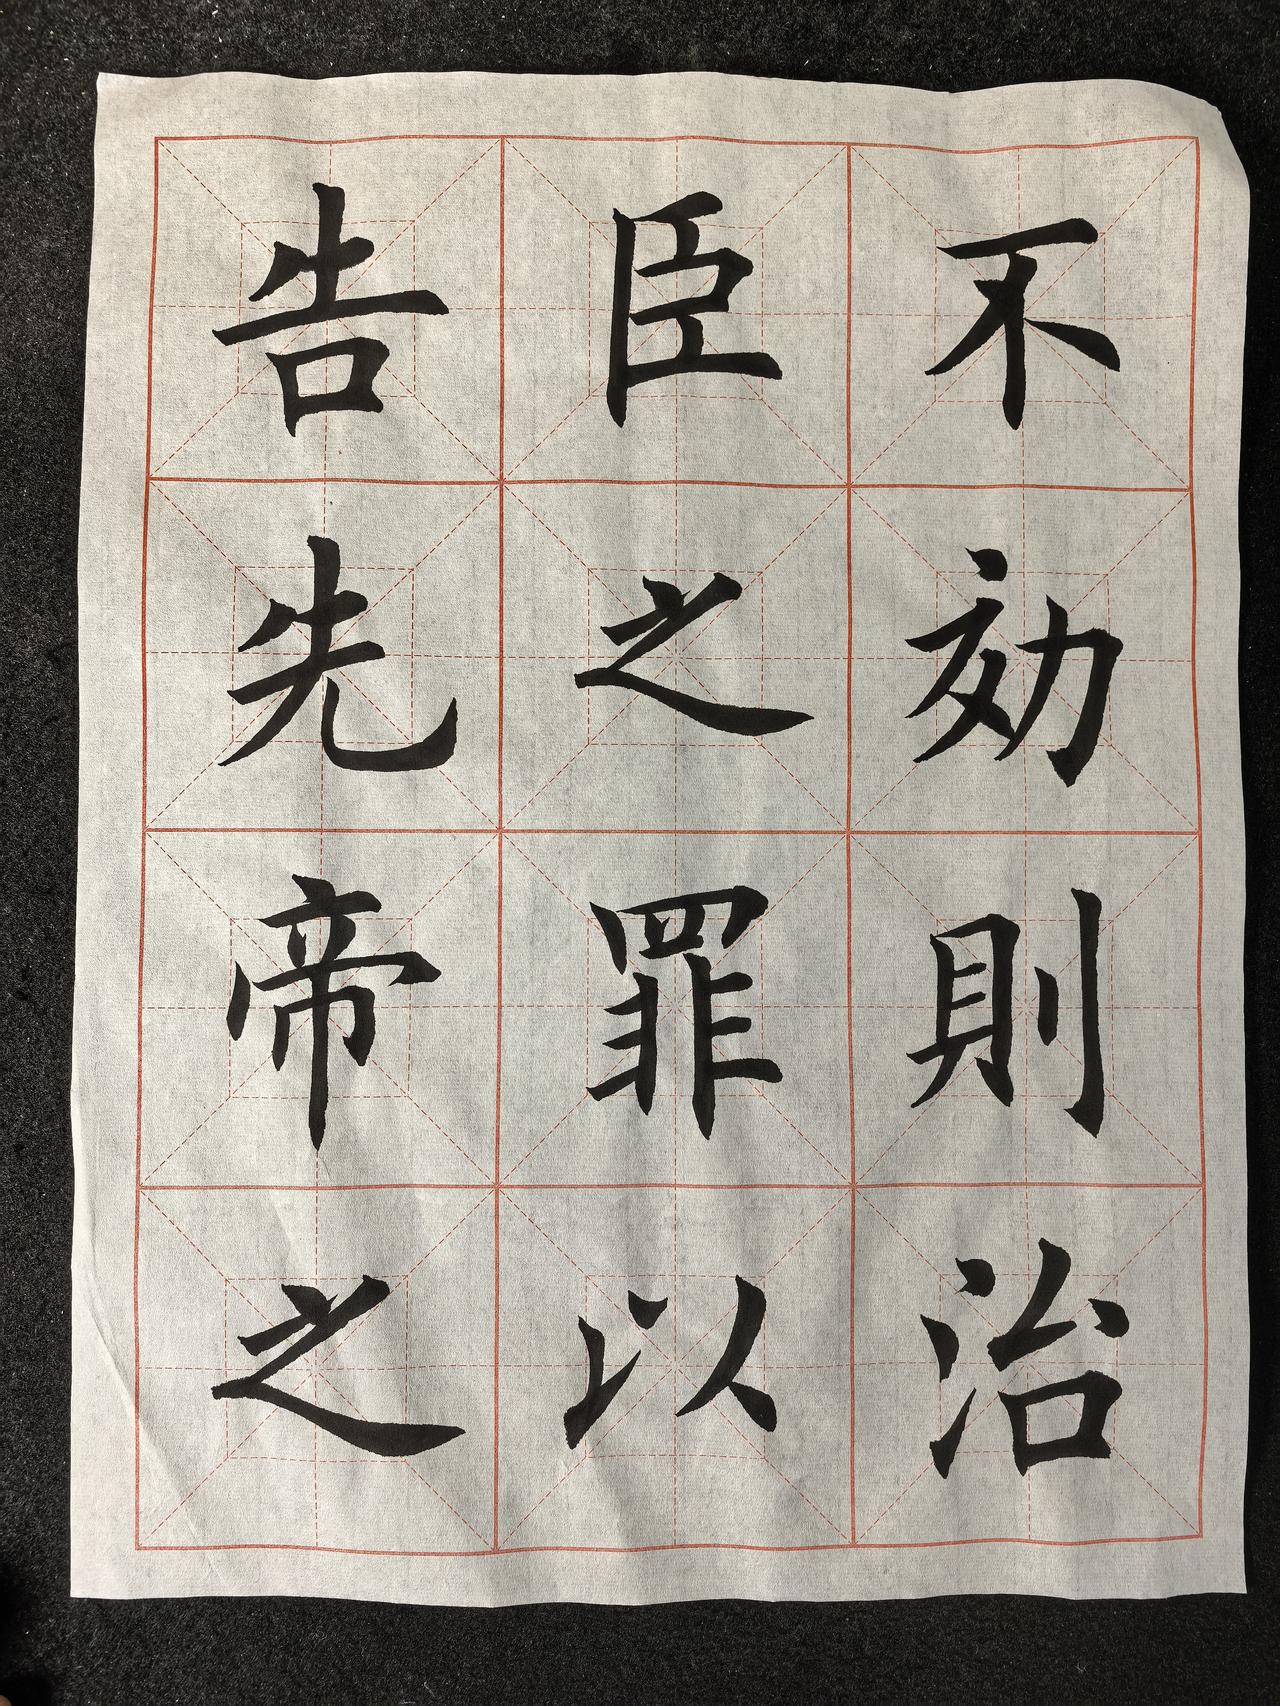 不効則治
臣之罪以
告先帝之